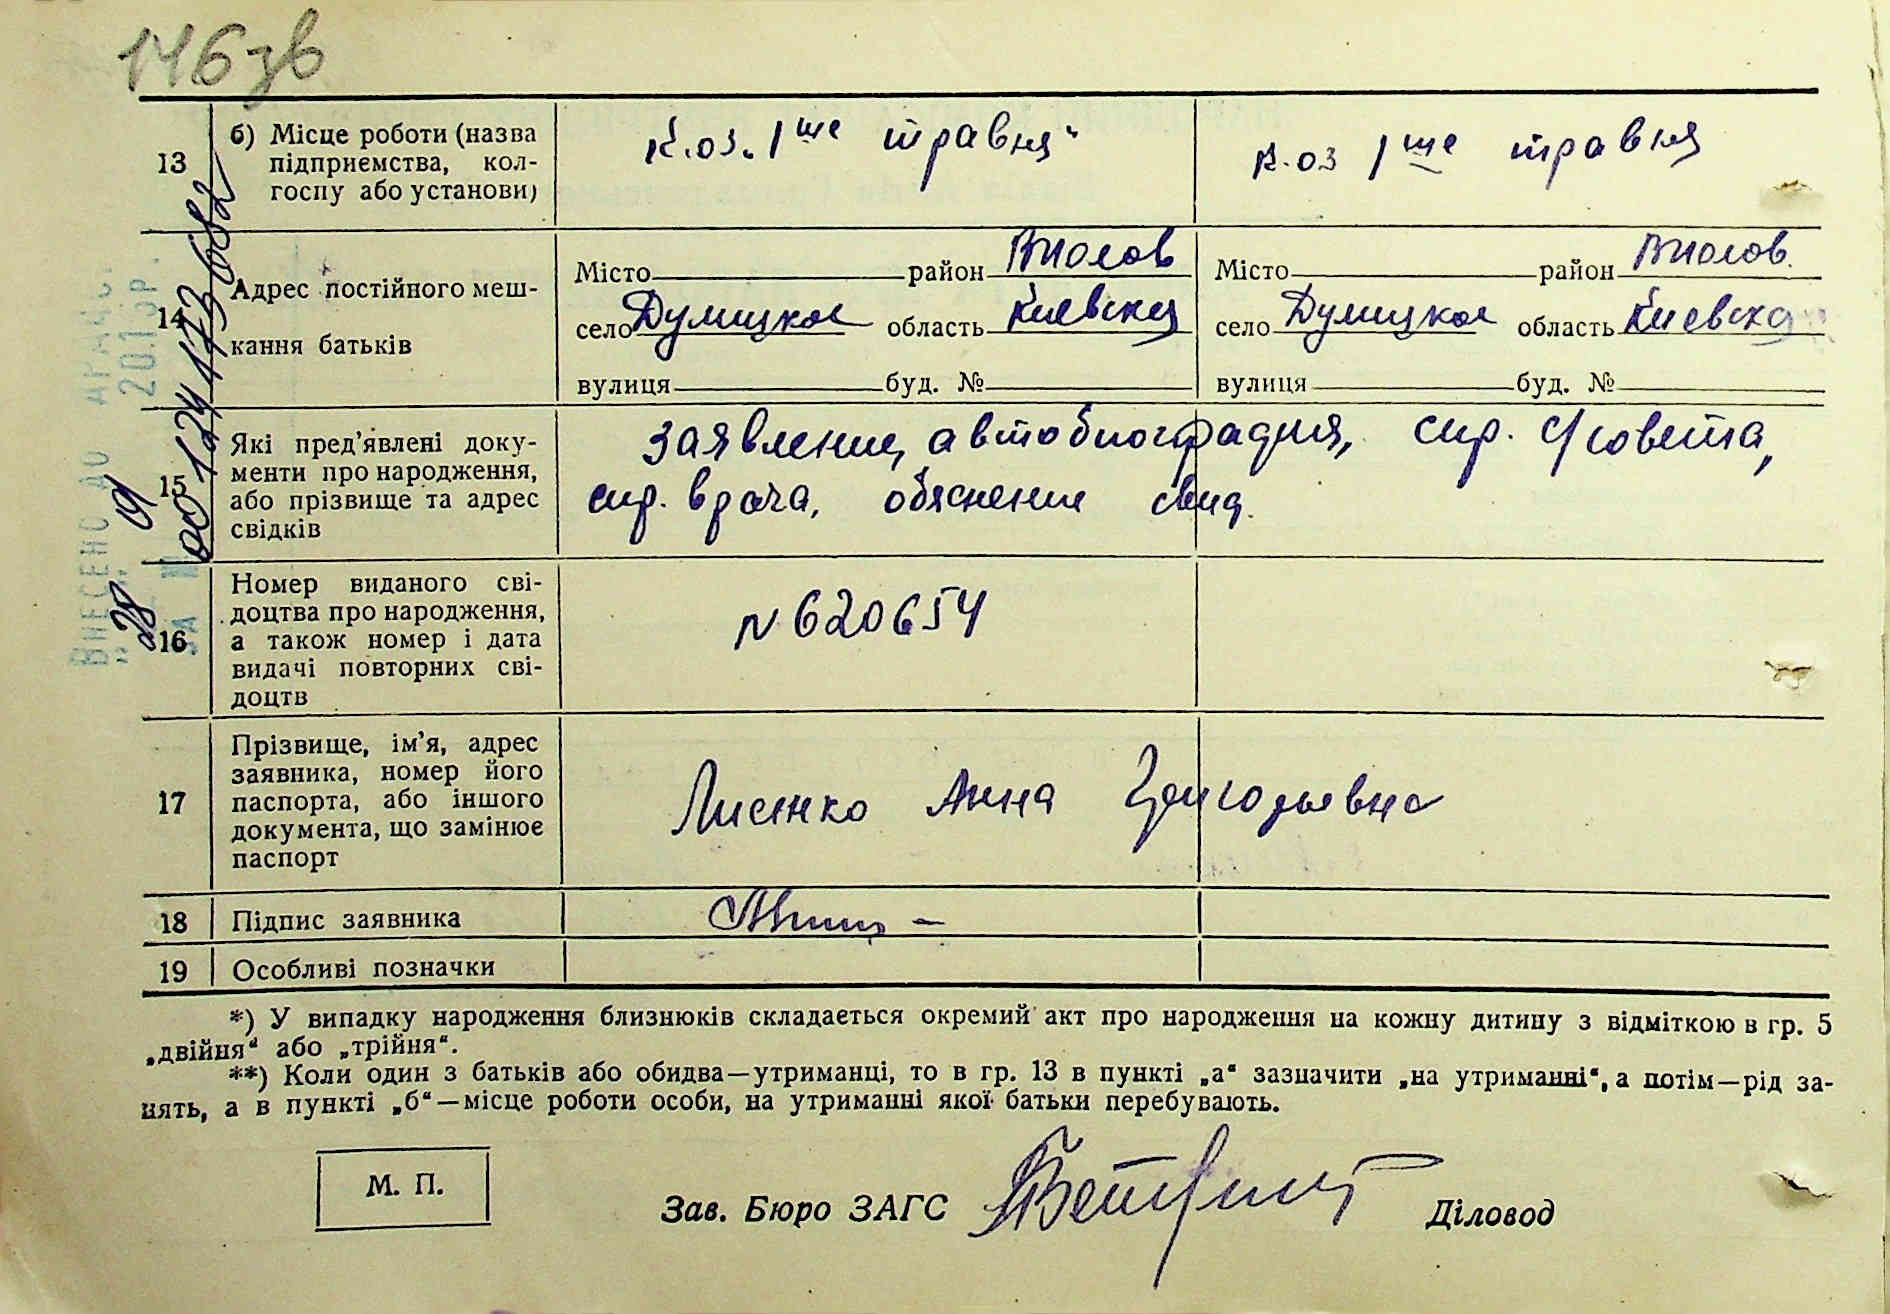 146 зв
13
б) Місце роботи (назва
підприємства, кол-
госпу або установи)
к.оз. 1ше травня"
к.оз 1ше травня
14
Адрес постійного меш-
кання батьків
Місто район
село Думицкое область Киевская
вулиця буд. №
Місто район
село Думицкое область Киевска
вулиця буд. №
15
Які пред'явлені доку-
менти про народження,
або прізвище та адрес
свідків
заявление, автобиография, спр. с/совета,
спр. врача, обяснение свид.
16
Номер виданого сві-
доцтва про народження,
а також номер і дата
видачі повторних сві-
доцтв
N 620654
17
Прізвище, ім'я, адрес
заявника, номер його
паспорта, або іншого
документа, що замінює
паспорт
Лисенко Анна Григорьевна
18
Підпис заявника
19
Особливі позначки
*) У випадку народження близнюків складається окремий акт про народження на кожну дитину з відміткою в гр. 5
„двійня“ або „трійня“.
**) Коли один з батьків або обидва—утриманці, то в гр. 13 в пункті „а“ зазначити „на утриманні“, а потім—рід за-
нять, а в пункті „б“—місце роботи особи, на утриманні якої батьки перебувають.
М. П.
Зав. Бюро ЗАГС
Діловод
ВНЕСЕНО ДО
" 28 " 01 201 р.
ЗА № 00124173682